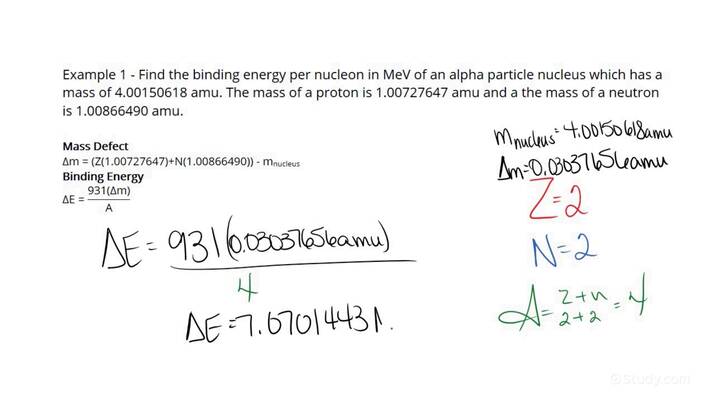 Example 1 - Find the binding energy per nucleon in MeV of an alpha particle nucleus which has a
mass of 4.00150618 amu. The mass of a proton is 1.00727647 amu and a the mass of a neutron
is 1.00866490 amu.
Mass Defect
Δm = (Z(1.00727647)+N(1.00866490)) - mnucleus
Binding Energy
ΔE = 931(Δm)
A
mnucleus = 4.00150618amu
Δm = 0.03037656amu
Z = 2
N = 2
A = Z+n = 4
2+2
ΔE = 931(0.03037656amu)
4
ΔE = 7.07014431
©Study.com